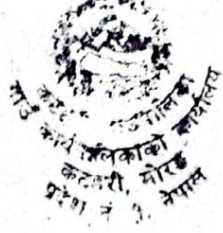 गाउँ कार्यपालिकाको कार्यालय
कटहरी, मोरङ
प्रदेश नं १, नेपाल